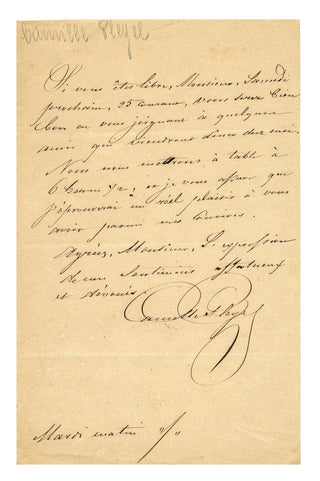 Camille Pleyel
Si vous êtes libre, Monsieur, Samedi
prochain, 25 courant, vous serez bien
bon en vous joignant à quelques
amis qui viendront dîner chez moi.
Nous nous mettrons à table à
6 heures 1/2, et je vous assure que
j'éprouverai un réel plaisir à vous
avoir parmi mes convives.
Agréez, Monsieur, l'expression
de mes sentiments affectueux
et dévoués
Camille Pleyel
Mardi matin